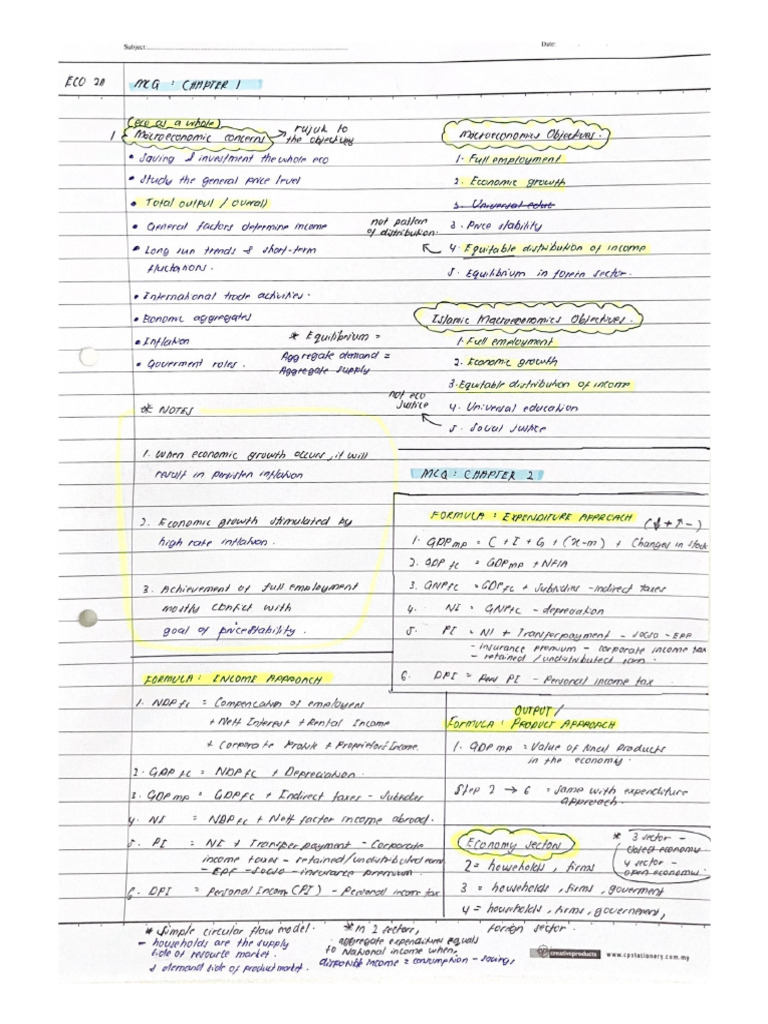 Subject:
Date:
ECO 211
MCQ : CHAPTER 1
(eco as a whole)
1 Macroeconomic concerns → rujuk to the objectives
• Saving & investment the whole eco
• Study the general price level
• Total output / overall
• General factors determine income
• Long run trends & short-term
fluctations.
• International trade activities.
• Economic aggregates
• Inflation
• Goverment roles.
* Equilibrium =
Aggregate demand =
Aggregate supply
Macroeconomics Objectives.
1. Full employment
2. Economic growth
3. Universal educ
3. Price stability
4. Equitable distribution of income
not pattern
of distribution.
5. Equilibrium in forein sector.
Islamic Macroeconomics Objectives.
1. Full employment
2. Economic growth
3. Equitable distribution of income
4. Universal education
not eco
justice
5. Social justice
* NOTES
1. When economic growth occurs, it will
result in persisten inflation
2. Economic growth stimulated by
high rate inflation.
3. Achievement of full employment
mostly conflict with
goal of price stability.
MCQ : CHAPTER 2
FORMULA : EXPENDITURE APPROACH (↓+↑-)
1. GDPmp = C + I + G + (x-m) + Changes in stock
2. GDP fc = GDPmp + NFIA
3. GNPfc = GDPfc + Subsidies - Indirect taxes
4. NI = GNPfc - depreciation
5. PI = NI + Transfer payment - SOCSO - EPF
- insurance premium - corporate income tax
- retained / undistributed earn.
6. DPI = PI - Personal income tax
FORMULA : INCOME APPROACH
1. NDPfc = Compensation of employees
+ Nett Interest + Rental Income
+ Corporate Profit + Proprietors Income.
2. GDP fc = NDP fc + Depreciation.
3. GDPmp = GDPfc + Indirect taxes - Subsidies
4. NI = NDPfc + Nett factor income abroad.
5. PI = NI + Transfer payment - Corporate
income taxes - retained/undistributed earn
- EPF - SOCSO - insurance premium.
6. DPI = Personal Incom (PI) - Personal income tax
OUTPUT /
FORMULA : PRODUCT APPROACH
1. GDP mp = Value of final products
in the economy.
Step 2 → 6 = same with expenditure
approach.
Economy sectors
2 = households, firms
3 = households, firms, goverment
4 = households, firms, government,
foreign sector.
* 3 sector -
closed economy
4 sector -
open economy.
* Simple circular flow model.
- households are the supply
side of resource market.
& demand side of product market.
* In 2 sectors,
aggregate expenditure equals
to National income when,
disposible income = consumption - saving,
creativeproducts www.cpstationery.com.my